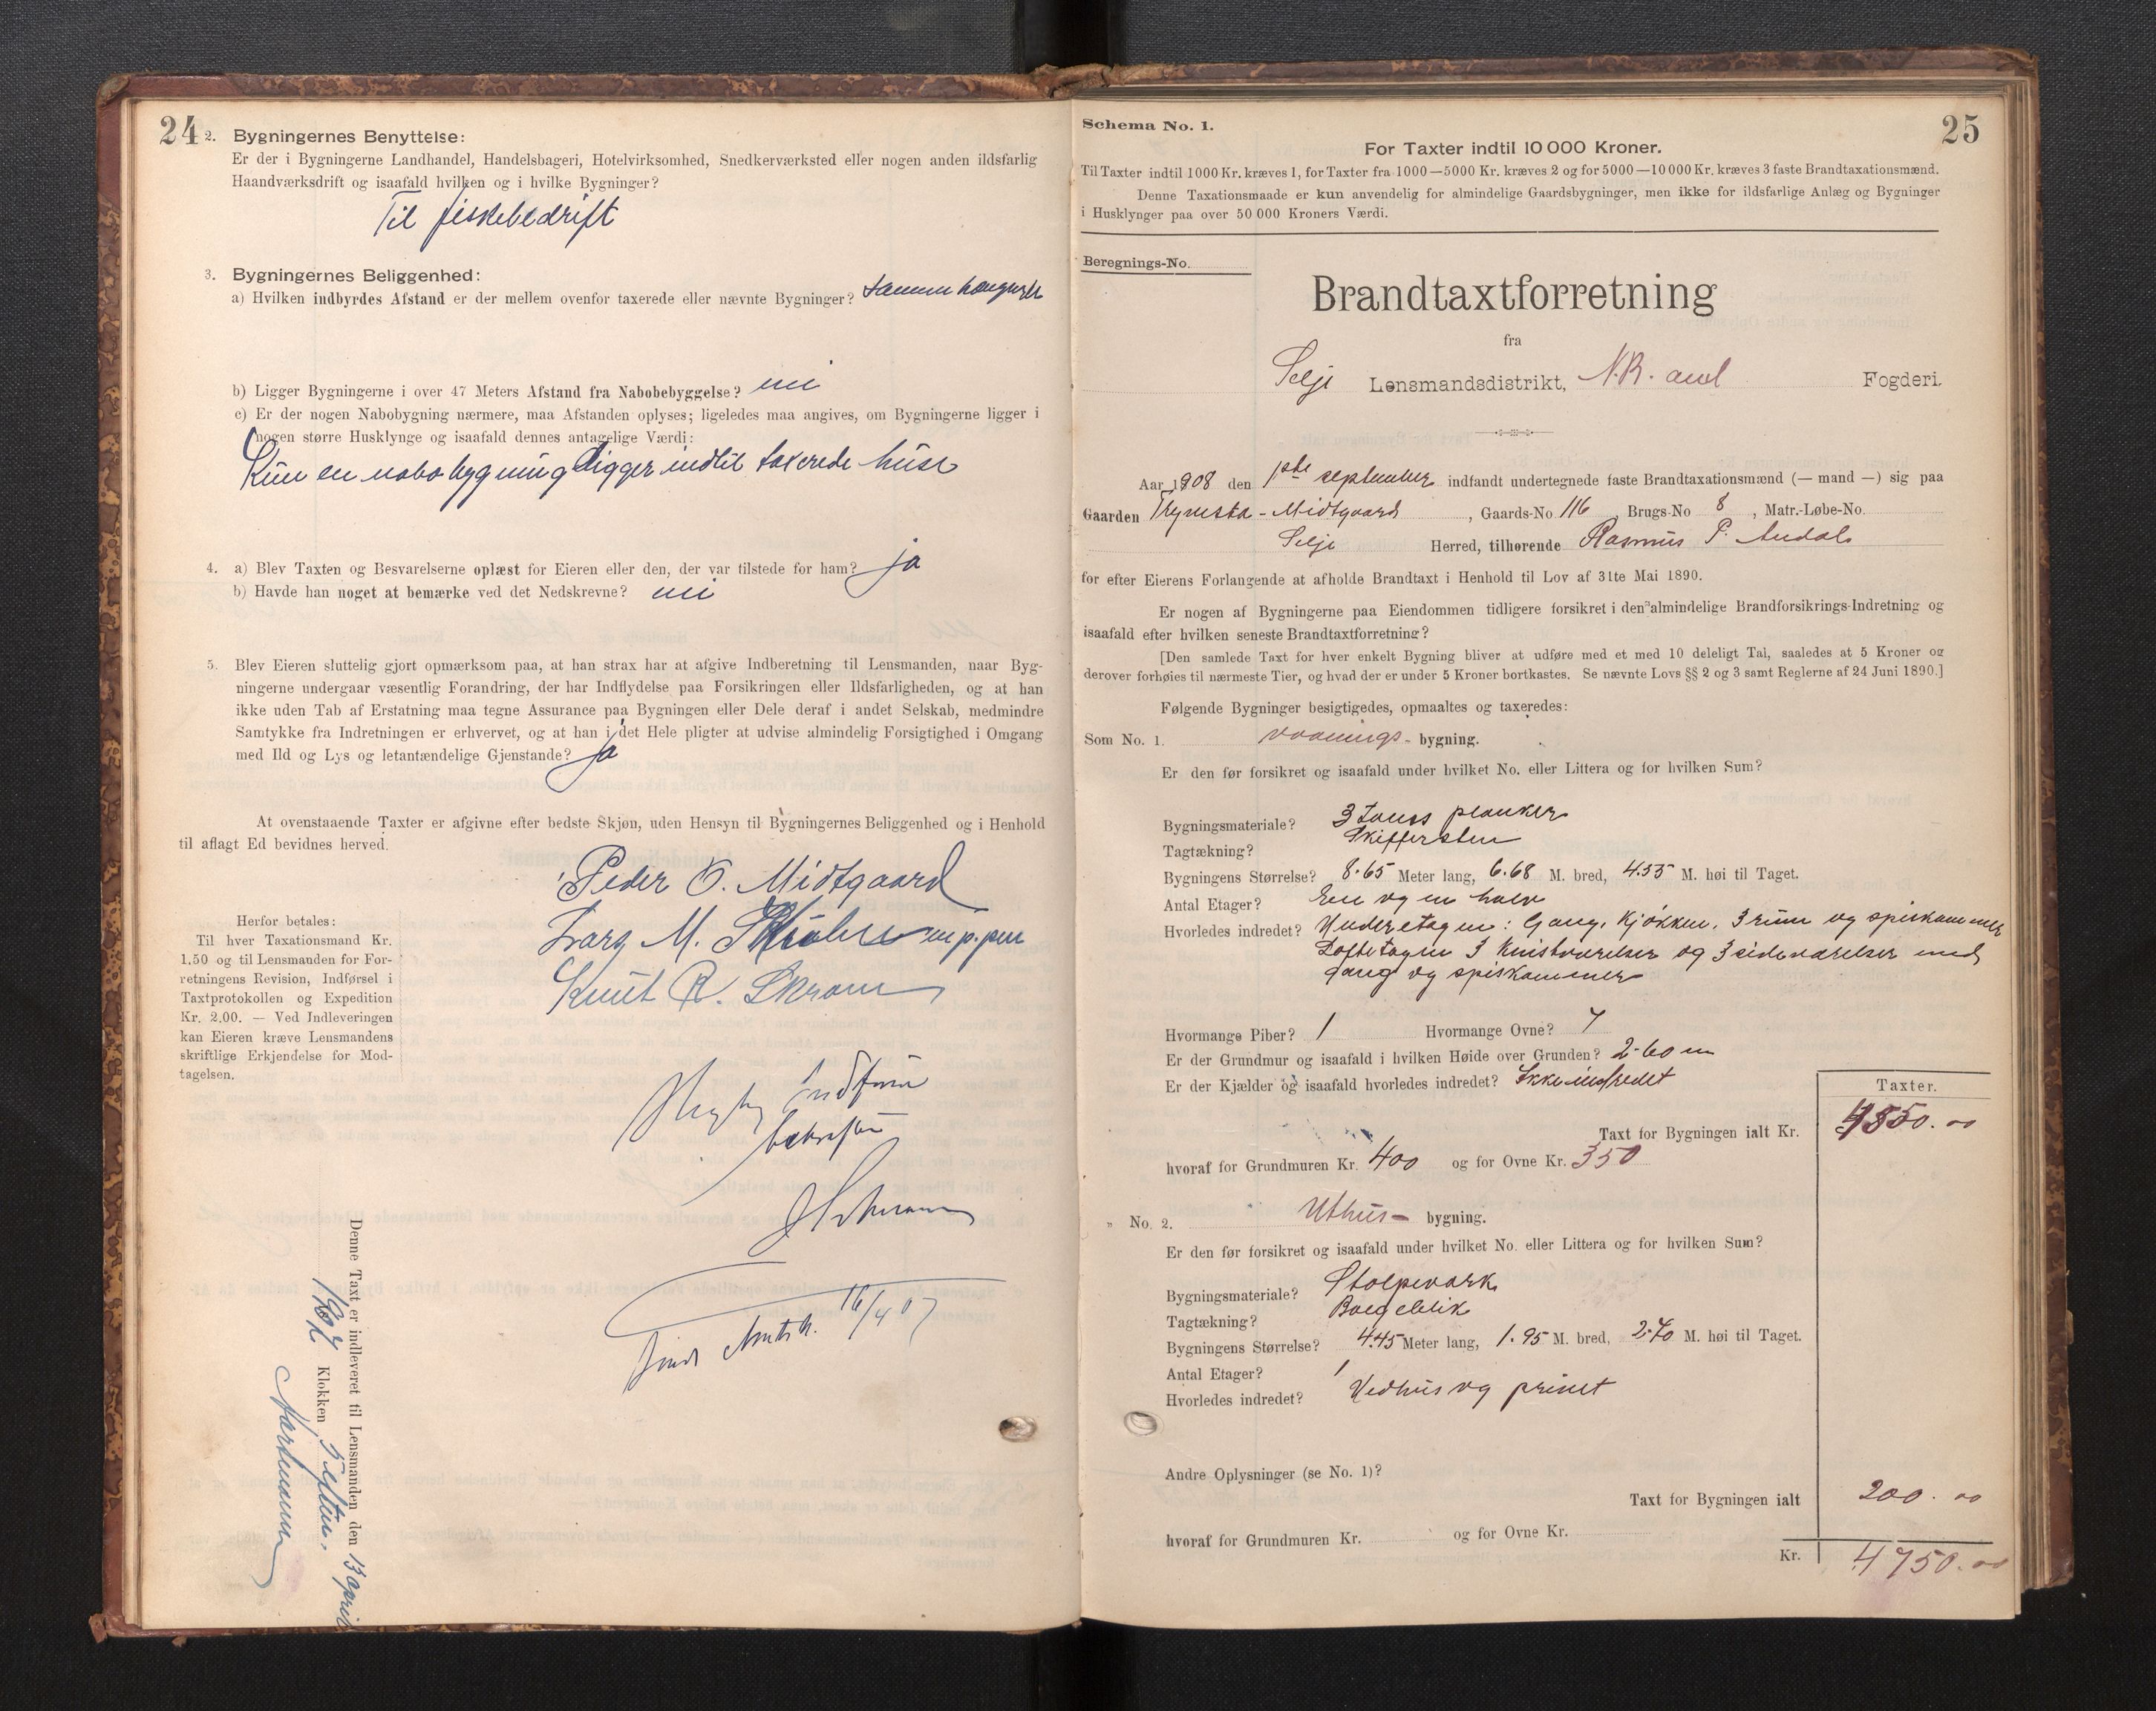 24
2. Bygningernes Benyttelse:
Er der i Bygningerne Landhandel, Handelsbageri, Hotelvirksomhed, Snedkerværksted eller nogen anden ildsfarlig
Haandværksdrift og isaafald hvilken og i hvilke Bygninger?
Til fiskebedrift
3. Bygningernes Beliggenhed:
a) Hvilken indbyrdes Afstand er der mellem ovenfor taxerede eller nævnte Bygninger?
b) Ligger Bygningerne i over 47 Meters Afstand fra Nabobebyggelse? nei
c) Er der nogen Nabobygning nærmere, maa Afstanden oplyses; ligeledes maa angives, om Bygningerne ligger i
nogen større Husklynge og isaafald dennes antagelige Værdi:
Kun en nabobygning ligger indtil taxerede huse
4. a) Blev Taxten og Besvarelserne oplæst for Eieren eller den, der var tilstede for ham? ja
b) Havde han noget at bemærke ved det Nedskrevne? nei
5. Blev Eieren sluttelig gjort opmærksom paa, at han strax har at afgive Indberetning til Lensmanden, naar Byg-
ningerne undergaar væsentlig Forandring, der har Indflydelse paa Forsikringen eller Ildsfarligheden, og at han
ikke uden Tab af Erstatning maa tegne Assurance paa Bygningen eller Dele deraf i andet Selskab, medmindre
Samtykke fra Indretningen er erhvervet, og at han i det Hele pligter at udvise almindelig Forsigtighed i Omgang
med Ild og Lys og letantændelige Gjenstande? ja
At ovenstaaende Taxter er afgivne efter bedste Skjøn, uden Hensyn til Bygningernes Beliggenhed og i Henhold
til aflagt Ed bevidnes herved.
Peder O. Midtgaard
Lars M. m. p. pen
Knut R. Skram
Herfor betales:
Til hver Taxationsmand Kr.
1.50 og til Lensmanden for For-
retningens Revision, Indførsel i
Taxtprotokollen og Expedition
Kr. 2.00. — Ved Indleveringen
kan Eieren kræve Lensmandens
skriftlige Erkjendelse for Mod-
tagelsen.
bekræftes
16/4 07
Denne Taxt er indleveret til Lensmanden den 13 april
1907 Klokken
25
Schema No. 1.
For Taxter indtil 10 000 Kroner.
Til Taxter indtil 1000 Kr. kræves 1, for Taxter fra 1000—5000 Kr. kræves 2 og for 5000—10 000 Kr. kræves 3 faste Brandtaxationsmænd.
Denne Taxationsmaade er kun anvendelig for almindelige Gaardsbygninger, men ikke for ildsfarlige Anlæg og Bygninger
i Husklynger paa over 50 000 Kroners Værdi.
Beregnings-No.
Brandtaxtforretning
fra
Selje Lensmandsdistrikt, Fogderi.
Aar 1908 den 1ste september indfandt undertegnede faste Brandtaxationsmænd (— mand —) sig paa
Gaarden - Midtgaard, Gaards-No 116, Brugs-No 8, Matr.-Løbe-No.
Selje Herred, tilhørende Rasmus P. Audal
for efter Eierens Forlangende at afholde Brandtaxt i Henhold til Lov af 31te Mai 1890.
Er nogen af Bygningerne paa Eiendommen tidligere forsikret i den almindelige Brandforsikrings-Indretning og
isaafald efter hvilken seneste Brandtaxtforretning?
[Den samlede Taxt for hver enkelt Bygning bliver at udføre med et med 10 deleligt Tal, saaledes at 5 Kroner og
derover forhøies til nærmeste Tier, og hvad der er under 5 Kroner bortkastes. Se nævnte Lovs §§ 2 og 3 samt Reglerne af 24 Juni 1890.]
Følgende Bygninger besigtigedes, opmaaltes og taxeredes:
Som No. 1. vaanings-bygning.
Er den før forsikret og isaafald under hvilket No. eller Littera og for hvilken Sum?
Bygningsmateriale? 3 toms planker
Tagtækning? Skiffersten
Bygningens Størrelse? 8.65 Meter lang, 6.68 M. bred, 4.55 M. høi til Taget.
Antal Etager? En og en halv
Hvorledes indredet? Underetagen: Gang, Kjøkken, 3 rum og spiskammer
Loftetagen 3 kvistværelser og 3 sideværelser med
gang og spiskammer
Hvormange Piber? 1 Hvormange Ovne? 7
Er der Grundmur og isaafald i hvilken Høide over Grunden? 2.60 m
Er der Kjælder og isaafald hvorledes indredet? Ikke indredet
Taxter.
Taxt for Bygningen ialt Kr. 4550.00
hvoraf for Grundmuren Kr. 400 og for Ovne Kr. 350
" No. 2. Uthus- bygning.
Er den før forsikret og isaafald under hvilket No. eller Littera og for hvilken Sum?
Bygningsmateriale? Stolpeværk
Tagtækning? Bølgeblik
Bygningens Størrelse? 4.45 Meter lang, 1.95 M. bred, 2.70 M. høi til Taget.
Antal Etager? 1
Hvorledes indredet? Vedhus og privet
Andre Oplysninger (se No. 1)?
Taxt for Bygningen ialt 200.00
hvoraf for Grundmuren Kr. og for Ovne Kr.
Kr. 4750.00